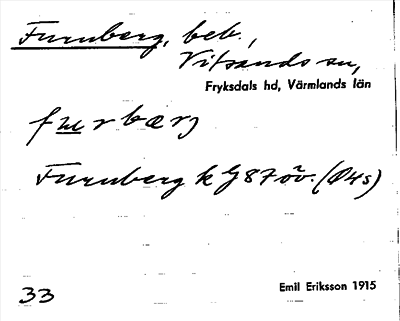 Furuberg, beb.,
Vitsands sn,
Fryksdals hd, Värmlands län
Furuberg k GS 87 öv. (Ö4s)
33
Emil Eriksson 1915